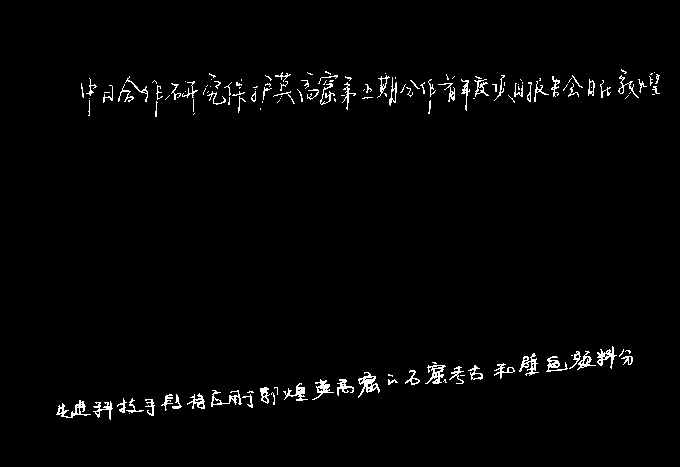 中日合作研究保护莫高窟第五期合作首年度项目报告会日在敦煌
先进科技手段将应用于敦煌莫高窟的石窟考古和壁画颜料分